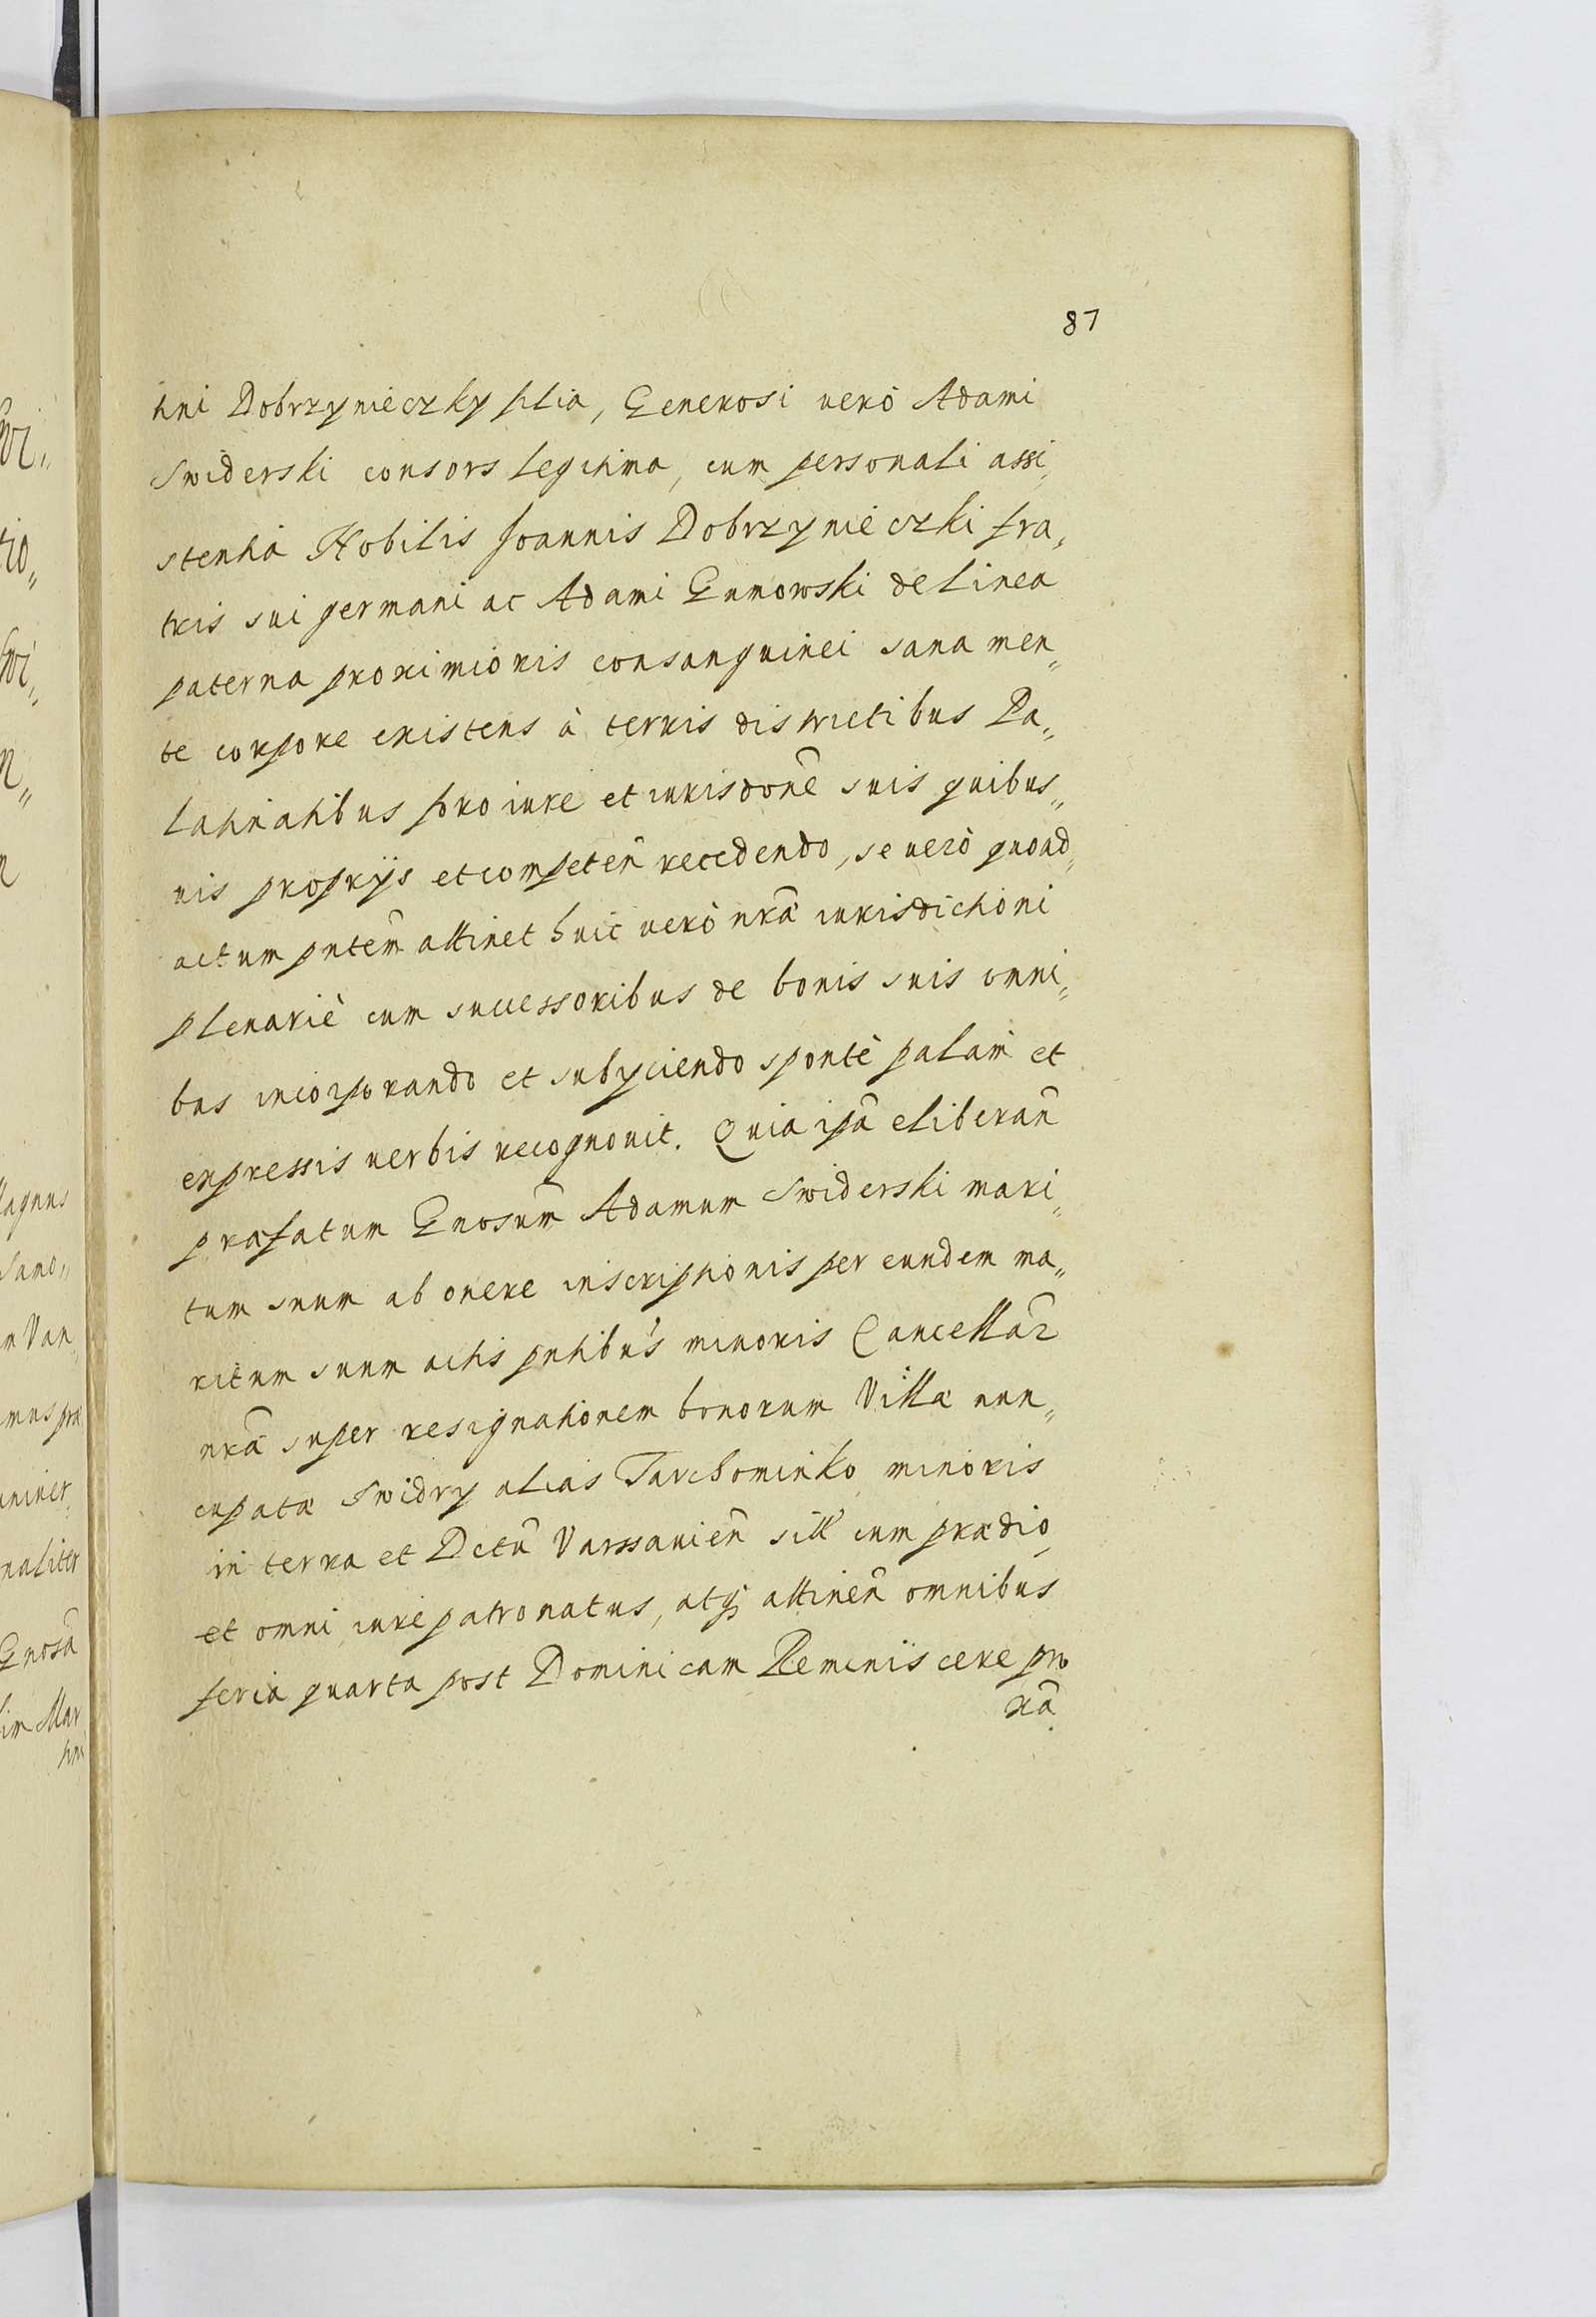 87
tini Dobrzynieczky filia, Generosi uerò Adami
Swiderski consors legitima, cum personali assi„
stentia Nobilis Joannis Dobrzynieczki fra„
tris sui germani ac Adami Gunowski de linea
paterna proximioris consanguinei sana men„
te corpore existens à terris districtibus Pa„
latinatibus pro iure et iurisdonẽ suis quibus„
uis proprijs et competeñ recedendo, se uerò quoad„
actum pntem̃ attinet huic uerò nr̃æ iurisdictioni
plenariè cum successoribus de bonis suis omni„
bus incorporando et subyciendo spontè palam et
expressis uerbis recognouit. Quia ipã eliberañ
præfatum Gnosum̃ Adamum Swiderski mari„
tum suum ab onere inscriptionis per eundem ma„
ritum suum actis pntibus minoris Cancellar̃
nr̃æ super resignationem bonorum Villæ nun„
cupatæ Swidry alias Tarchominko minoris
in terra et Dctũ Varssauieñ sitt cum prædio
et omni iure patronatus, atq; attineñ omnibus
feria quarta post Dominicam Reminiscere pro
xã
agnus
Samo„
m Van„
mus præ
naliter
Gnosã
lim Mar
tini